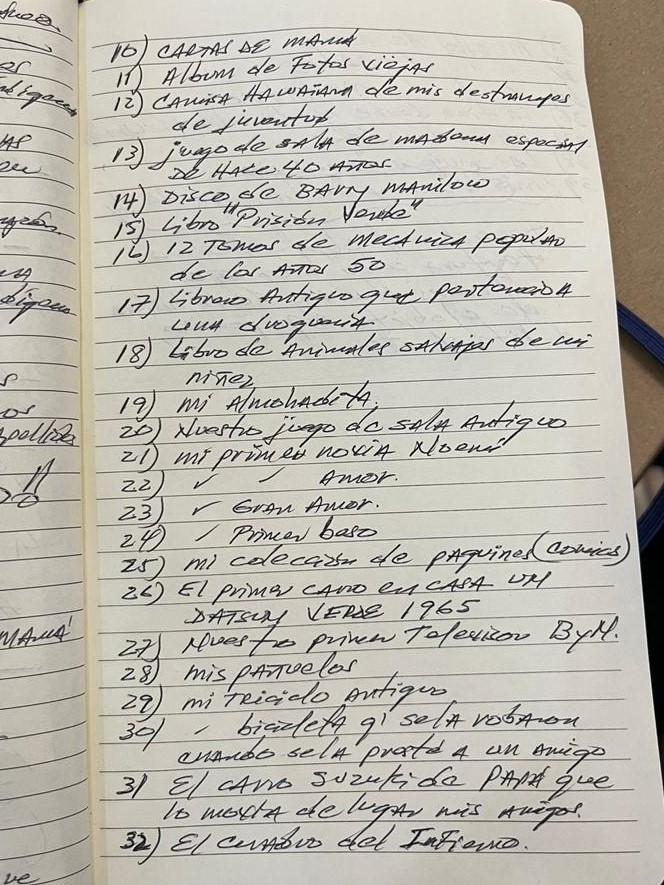 10) CARTAS DE MAMÁ
11) Album de Fotos viejas
12) CAMISA HAWAIANA de mis destrampes
de juventud
13) juego de SALA de madera especial
DE HACE 40 AÑOS
14) Disco de BARRY MANILOW
15) Libro "Prisión Verde"
16) 12 Tomos de MecÁnica popular
de los Años 50
17) Librero Antiguo que pertenecio A
una droguería
18) Libro de Animales SALVAjes de mi
niñez
19) mi Almohadita.
20) Nuestro juego de SALA Antiguo
21) mi primera novia Noemí
22) ✓ ✓ Amor.
23) ✓ Gran Amor.
24) ✓ Primer beso
25) mi colección de paquines (comics)
26) El primer carro en CASA UN
DATSUN VERDE 1965
27) Nuestro primer Televisor ByN.
28) mis pañuelos
29) mi Triciclo Antiguo
30) ✓ bicicleta q' se la robaron
cuando se la presté A un Amigo
31 El carro Suzuki de PAPÁ que
lo movía de lugar mis Amigos.
32) El cuadro del Infierno.
MAMÁ